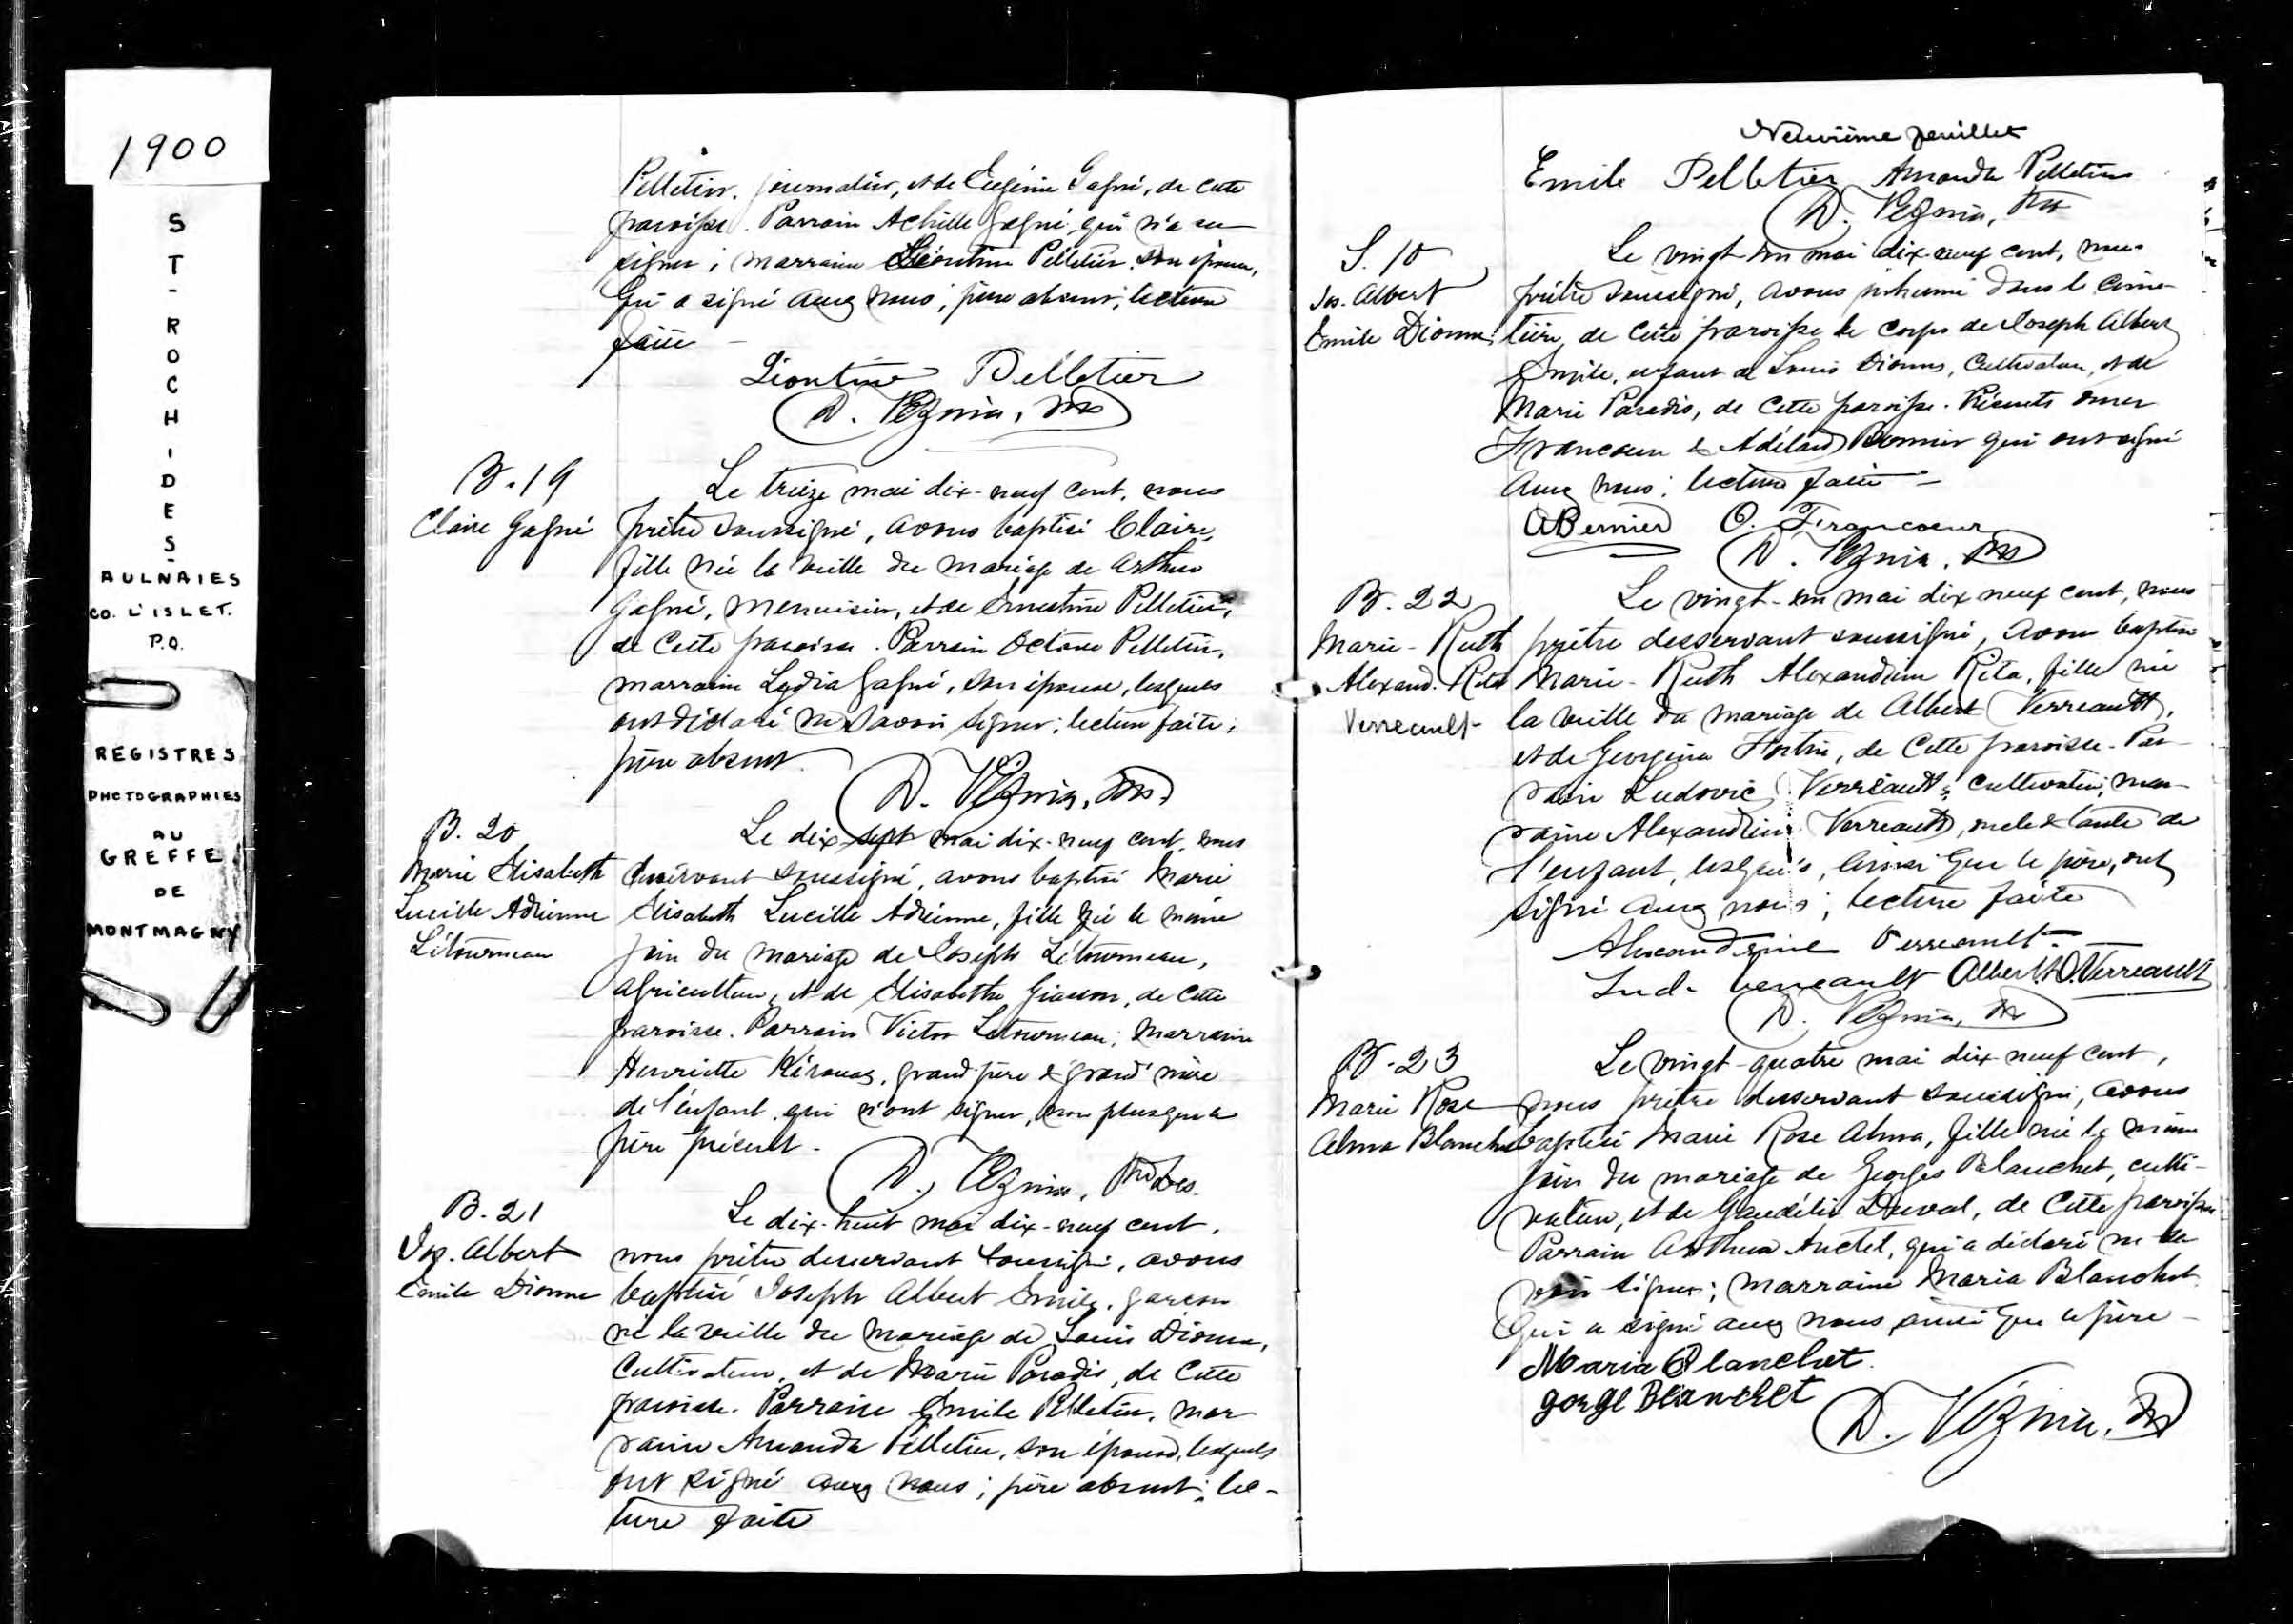 1900
ST-ROCH-DES-
AULNAIES
CO. L'ISLET.
P.Q.
REGISTRES
PHOTOGRAPHIES
AU
GREFFE
DE
MONTMAGNY
Pelletier, journalier, et de Eugénie Gagné, de cette
paroisse. Parrain Achille Gagné, qui n'a su
signer; marraine Léontine Pelletier, son épouse,
qui a signé avec nous; père absent; lecture
faite
Léontine Pelletier
D. Vézina, Ptre
B. 19
Claire Gagné
Le treize mai dix-neuf cent, nous
prêtre soussigné, avons baptisé Claire,
fille née la veille du mariage de Arthur
Gagné, menuisier, et de Ernestine Pelletier,
de cette paroisse. Parrain Octave Pelletier,
marraine Lydia Gagné, son épouse, lesquels
ont déclaré ne savoir signer; lecture faite;
père absent.
D. Vézina, Ptre
B. 20
Marie Elisabeth
Lucille Adrienne
Létourneau
Le dix sept mai dix-neuf cent, nous
desservant soussigné, avons baptisé Marie
Elisabeth Lucille Adrienne, fille née le même
jour du mariage de Joseph Létourneau,
agriculteur, et de Elisabeth Giasson, de cette
paroisse. Parrain Victor Letourneau; marraine
Henriette Kérouac, grand-père & grand'mère
de l'enfant qui n'ont signer, non plus que le
père présent.
D. Vézina, Ptre Des.
B. 21
Jos. Albert
Emile Dionne
Le dix-huit mai dix-neuf cent,
nous prêtre desservant soussigné, avons
baptisé Joseph Albert Emile, garçon
né la veille du mariage de Louis Dionne,
Cultivateur, et de Marie Paradis, de cette
paroisse. Parrain Emile Pelletier, mar-
raine Amanda Pelletier, son épouse, lesquels
ont signé avec nous; père absent; lec-
ture faite
Neuvième feuillet
Emile Pelletier Amanda Pelletier
D. Vézina, Ptre
S. 10
Jos. Albert
Emile Dionne
Le vingt-un mai dix-neuf cent, nous
prêtre soussigné, avons inhumé dans le cime-
tière de cette paroisse le corps de Joseph Albert
Emile, enfant de Louis Dionne, Cultivateur, et de
Marie Paradis, de cette paroisse. Présents Omer
Francoeur & Adélard Bernier qui ont signé
avec nous; lecture faite
A Bernier O. Francoeur
D. Vézina, Ptre
B. 22
Marie-Ruth
Alexand. Rita
Verreault
Le vingt-un mai dix neuf cent, nous
prêtre desservant soussigné, avons baptisé
Marie-Ruth Alexandrine Rita, fille née
la veille du mariage de Albert Verreault,
et de Georgina Fortin, de cette paroisse. Par-
rain Ludovic Verreault, cultivateur, mar-
raine Alexandrine Verreault, oncle & tante de
l'enfant, lesquels, ainsi que le père, ont
signé avec nous; lecture faite
Alexandrine Verreault
Lud. Verreault Albert O. Verreault
D. Vézina, Ptre
B. 23
Marie Rose
Alma Blanchet
Le vingt-quatre mai dix-neuf cent,
nous prêtre desservant soussigné, avons
baptisé Marie Rose Alma, fille née le même
jour du mariage de Georges Blanchet, culti-
vateur, et de Gaudélie Duval, de cette paroisse
Parrain Arthur Anctel, qui a déclaré ne sa
voir signer; marraine Maria Blanchet
qui a signé avec nous, ainsi que le père
Maria Blanchet
gorge Blanchet
D. Vézina, Ptre